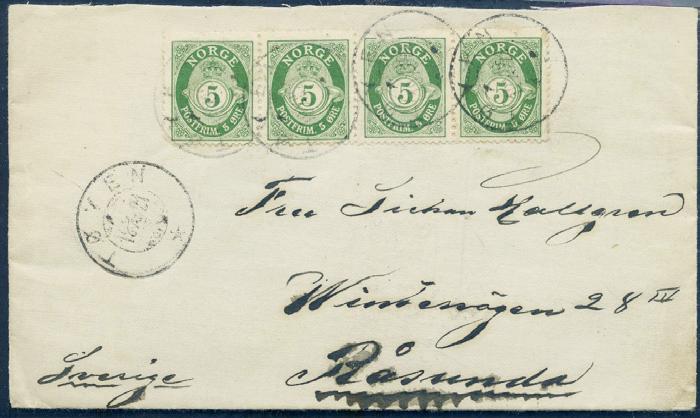 NORGE NORGE NORGE NORGE
5 5 5 5
POSTFRIM. 5 ØRE POSTFRIM. 5 ØRE POSTFRIM. 5 ØRE POSTFRIM. 5 ØRE
TØYEN
Hallgren
Vintervägen 28 IV
Råsunda
Sverige